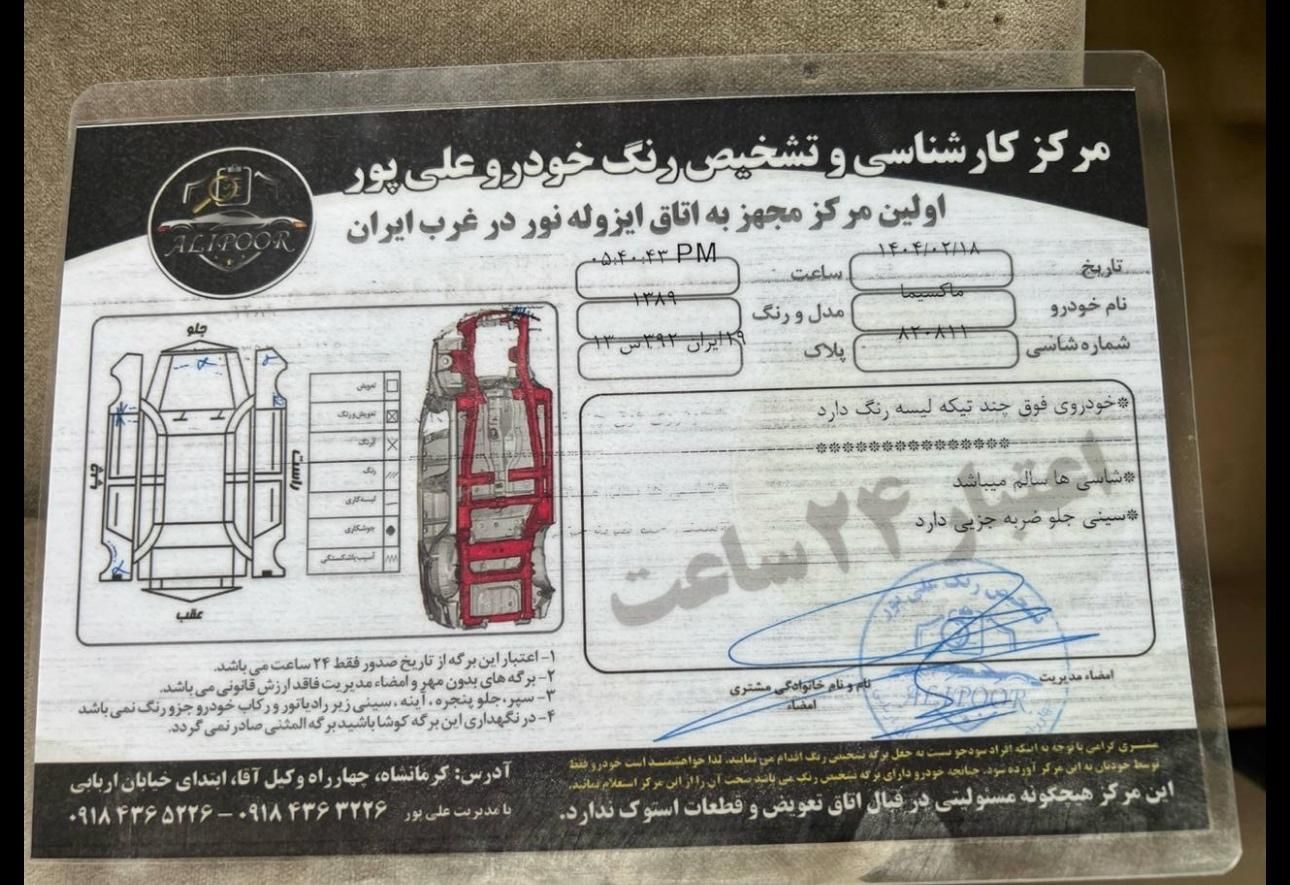 مرکز کارشناسی و تشخیص رنگ خودرو علی پور
اولین مرکز مجهز به اتاق ایزوله نور در غرب ایران
ALIPOOR
تاریخ ۱۴۰۴/۰۲/۱۸ ساعت ۰۵:۴۰:۴۳ PM
نام خودرو ماکسیما مدل و رنگ ۱۳۸۹
شماره شاسی ۸۲۰۸۱۱ پلاک ۱۹ایران ۳۹۲س ۱۳
*خودروی فوق چند تیکه لیسه رنگ دارد
***************
*شاسی ها سالم میباشد
*سینی جلو ضربه جزیی دارد
اعتبار ۲۴ ساعت
جلو
چپ
راست
عقب
تعویض
تعویض و رنگ
رنگ
لیسه کاری
جوشکاری
آسیب یا شکستگی
امضاء مدیریت
نام و نام خانوادگی مشتری
امضاء
تشخیص رنگ علی پور
ALIPOOR
۱- اعتبار این برگه از تاریخ صدور فقط ۲۴ ساعت می باشد.
۲- برگه های بدون مهر و امضاء مدیریت فاقد ارزش قانونی می باشد.
۳- سپر، جلو پنجره، آینه، سینی زیر رادیاتور و رکاب خودرو جزو رنگ نمی باشد
۴- در نگهداری این برگه کوشا باشید برگه المثنی صادر نمی گردد.
مشتری گرامی با توجه به اینکه افراد سودجو نسبت به جعل برگه تشخیص رنگ اقدام می نمایند، لذا خواهشمند است خودرو فقط
توسط خودتان به این مرکز آورده شود. چنانچه خودرو دارای برگه تشخیص رنگ می باشد صحت آن را از این مرکز استعلام نمایید.
این مرکز هیچگونه مسئولیتی در قبال اتاق تعویض و قطعات استوک ندارد.
آدرس: کرمانشاه، چهارراه وکیل آقا، ابتدای خیابان اربابی
با مدیریت علی پور ۰۹۱۸ ۴۳۶ ۳۲۲۶ – ۰۹۱۸ ۴۳۶ ۵۲۲۶